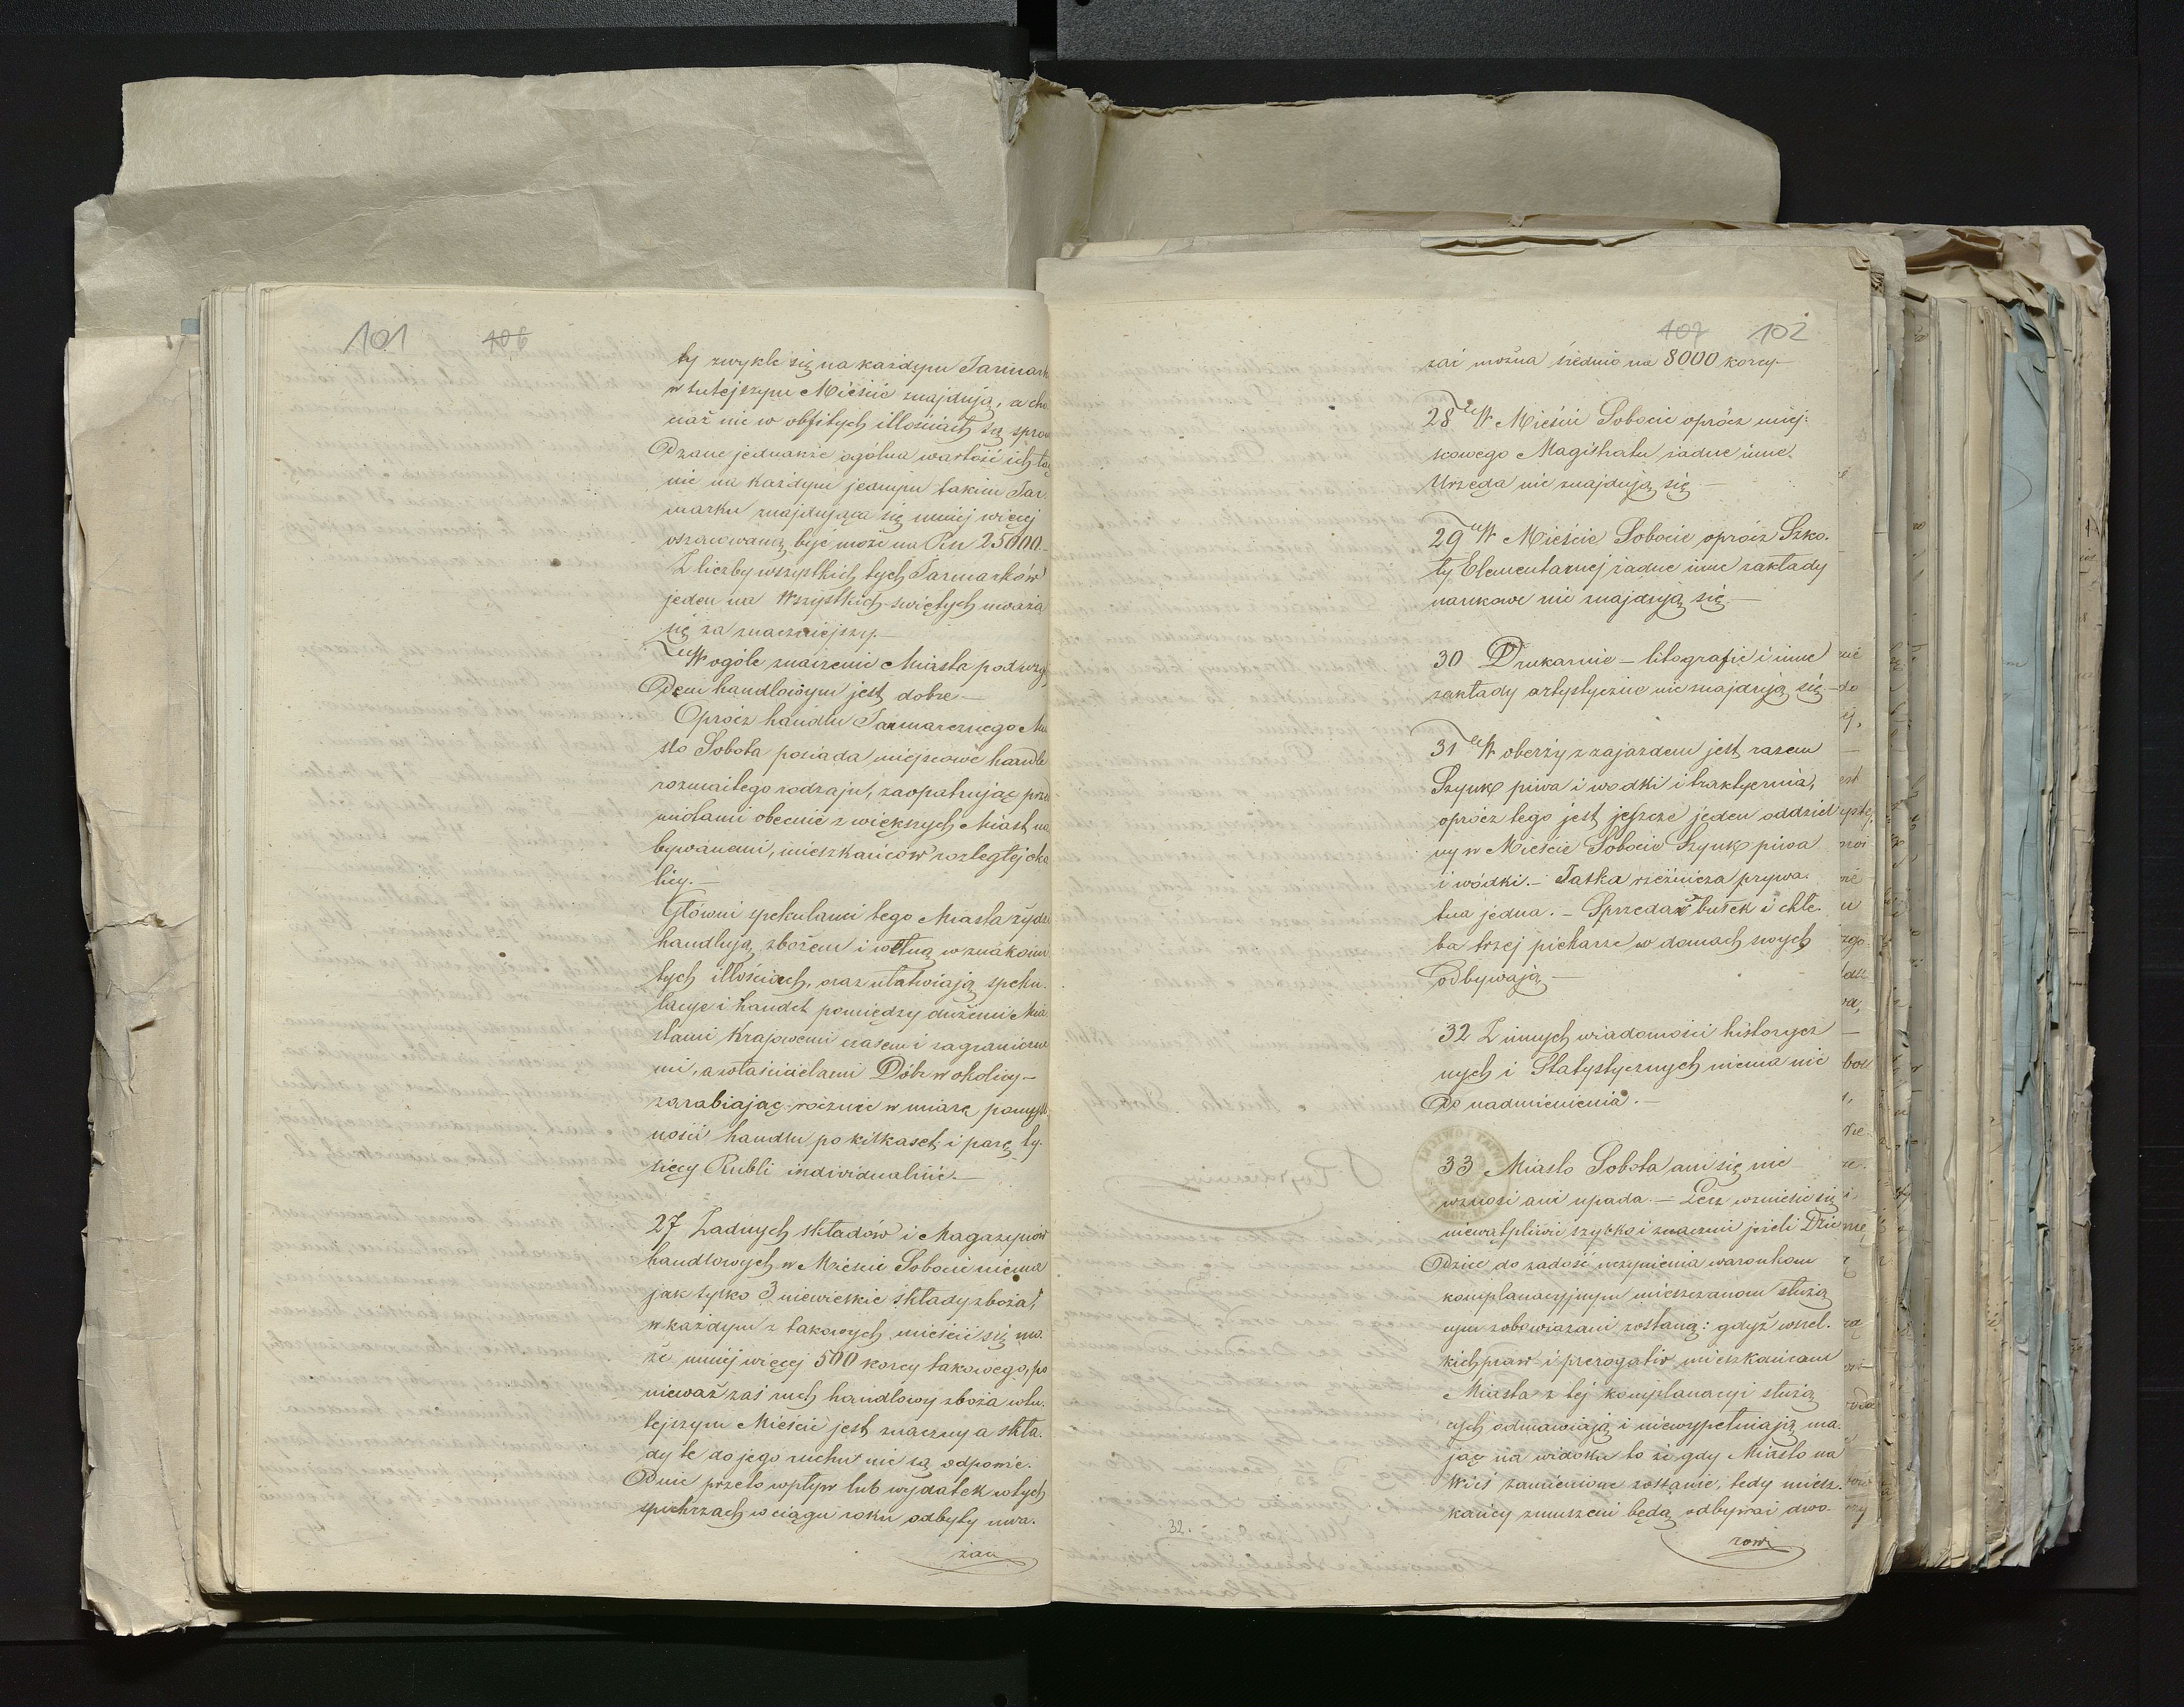 101 106
ty zwykle się na każdym Jarmark
w tutejszym Mieście znajdują, a cho
ciaż nie w obfitych illościach są spro
dzane jednakże ogólna wartość ich łą
nie na każdym jednym takim Jar
marku znajdująca się mniej więcej
oszacowaną być może na Rsr 25000.
Z liczby wszystkich tych Jarmarków
jeden na Wszystkich Świętych uważa
się za znaczniejszy.—
W ogóle znaczenie Miasta pod wzglę
dem handlowym jest dobre—
Oprócz handlu Jarmarcznego Mia
sto Sobota posiada miejscowe handle
rozmaitego rodzaju, zaopatrując prze
miotami obecnie z większych Miast na
bywanemi, mieszkańców rozległej oko
licy.—
Główni spekulanci tego Miasta żydzi
handlują zbożem i wełną w znakomi
tych illościach, oraz ułatwiają speku-
lacye i handel pomiędzy dużemi Mia
stami Krajowemi czasem i zagraniczne
mi, a właścicielami Dóbr w okolicy—
zarabiając rocznie w miarę pomyśl
ności handlu po kilkaset i parę ty-
sięcy Rubli individualnie.—
27 Żadnych składów i Magazynów
handlowych w Mieście Sobocie niema
jak tylko 3 niewielkie składy zboża,
w każdym z takowych mieścić się mo-
że mniej więcej 500 korcy takowego, po
nieważ zaś ruch handlowy zboża w tu-
tejszym Mieście jest znaczny a skła-
dy te do jego ruchu nie są odpowie-
dnie przeto wpływ lub wydatek w tych
spichrzach w ciągu roku odbyty uwa-
żać
107 102
zać można średnio na 8000 korcy—
28 W Mieście Sobocie oprócz miej-
scowego Magistratu żadne inne
Urzęda nie znajdują się—
29 W Mieście Sobocie oprócz Szko-
ły Elementarnej żadne inne zakłady
naukowe nie znajdują się.—
30 Drukarnie — litografie i inne
zakłady artystyczne nie znajdują się.—
31 W oberży z zajazdem jest razem
Szynk piwa i wodki i traktyernia,
oprócz tego jest jeszcze jeden oddziel
ny w Mieście Sobocie Szynk piwa
i wódki.— Jatka rzeźnicza prywa-
tna jedna.— Sprzedaż bułek i chle-
ba trzej piekarze w domach swych
odbywają—
32 Z innych wiadomości historycz
nych i Statystycznych niema nic
do nadmienienia.—
33 Miasto Sobota ani się nie
wznosi ani upada.— Lecz wzniesie się
niewątpliwie szybko i znacznie jeżeli Dzie
dzice do zadość uczynienia warunkom
komplanacyjnym mieszczanom służą
cym zobowiązani zostaną: gdyż wszel-
kich praw i prerogatiw mieszkańcom
Miasta z tej komplanacyi służą
cych odmawiają i niewypełniają ma-
jąc na widoku to że gdy Miasto na
Wieś zamienione zostanie, tedy miesz-
kańcy zmuszeni będą odbywać dwo-
rowi
32.